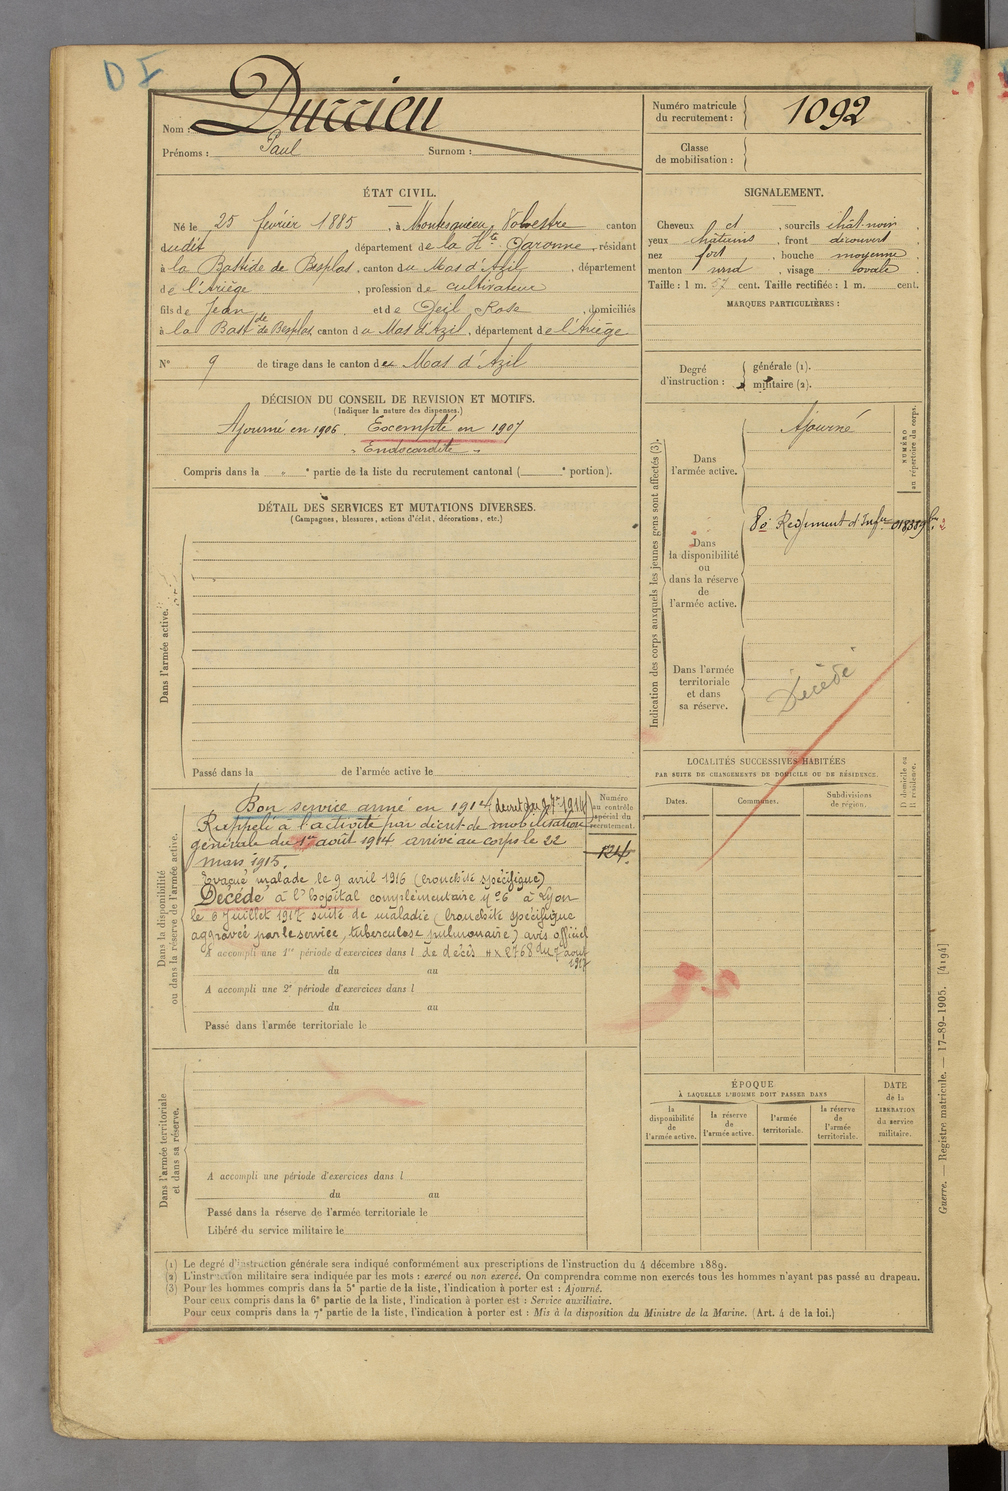 D I
Nom : Durrieu
Prénoms : Paul Surnom :
Numéro matricule du recrutement : 1092
Classe de mobilisation :
ÉTAT CIVIL.
Né le 25 février 1885, à Montesquieu Volvestre canton
dudit, département de la Hte Garonne, résidant
à la Bastide de Besplas, canton du Mas d'Azil, département
de l'Ariège, profession de cultivateur
fils de Jean et de Deil Rose, domiciliés
à la Bast de de Besplas, canton du Mas d'Azil, département de l'Ariège
N° 9 de tirage dans le canton de Mas d'Azil
SIGNALEMENT.
Cheveux et, sourcils chât-noir
yeux châtains, front découvert
nez fort, bouche moyenne
menton rond, visage ovale
Taille : 1 m. 57 cent. Taille rectifiée : 1 m. cent.
MARQUES PARTICULIÈRES :
Degré d'instruction : générale (1).
militaire (2).
DÉCISION DU CONSEIL DE REVISION ET MOTIFS.
(Indiquer la nature des dispenses.)
Ajourné en 1906. Exempté en 1907
Endocardite
Compris dans la " ° partie de la liste du recrutement cantonal ( ° portion).
DÉTAIL DES SERVICES ET MUTATIONS DIVERSES.
(Campagnes, blessures, actions d'éclat, décorations, etc.)
Dans l'armée active.
Passé dans la de l'armée active le
Dans la disponibilité
ou dans la réserve de l'armée active.
Bon service armé en 1914 (décret du 9 7re 1914)
Rappelé à l'activité par décret de mobilisation
générale du 1er août 1914 arrivé au corps le 22
mars 1915.
Evacué malade le 9 avril 1916 (bronchite spécifique)
Décédé à l'hopital complémentaire n° 6 à Lyon
le 6 Juillet 1917 suite de maladie (bronchite spécifique
aggravée par le service, tuberculose pulmonaire) avis officiel
A accompli une 1re période d'exercices dans l
de décès HX 2768 du 7 août
1917
du au
A accompli une 2e période d'exercices dans l
du au
Passé dans l'armée territoriale le
Numéro au contrôle spécial du recrutement.
124
Dans l'armée territoriale
et dans sa réserve.
A accompli une période d'exercices dans l
du au
Passé dans la réserve de l'armée territoriale le
Libéré du service militaire le
Indication des corps auxquels les jeunes gens sont affectés (3).
NUMÉRO
au répertoire du corps.
Dans l'armée active.
Ajourné
Dans la disponibilité ou dans la réserve de l'armée active.
80 Régiment d'Infie
Dans l'armée territoriale et dans sa réserve.
Décédé
LOCALITÉS SUCCESSIVES HABITÉES
PAR SUITE DE CHANGEMENTS DE DOMICILE OU DE RÉSIDENCE.
Dates. Communes. Subdivisions de région. D domicile ou R résidence.
ÉPOQUE
À LAQUELLE L'HOMME DOIT PASSER DANS
la disponibilité de l'armée active.
la réserve de l'armée active.
l'armée territoriale.
la réserve de l'armée territoriale.
DATE de la LIBÉRATION du service militaire.
Guerre. — Registre matricule. — 17-89-1905. [4194]
(1) Le degré d'instruction générale sera indiqué conformément aux prescriptions de l'instruction du 4 décembre 1889.
(2) L'instruction militaire sera indiquée par les mots : exercé ou non exercé. On comprendra comme non exercés tous les hommes n'ayant pas passé au drapeau.
(3) Pour les hommes compris dans la 5e partie de la liste, l'indication à porter est : Ajourné.
Pour ceux compris dans la 6e partie de la liste, l'indication à porter est : Service auxiliaire.
Pour ceux compris dans la 7e partie de la liste, l'indication à porter est : Mis à la disposition du Ministre de la Marine. (Art. 4 de la loi.)